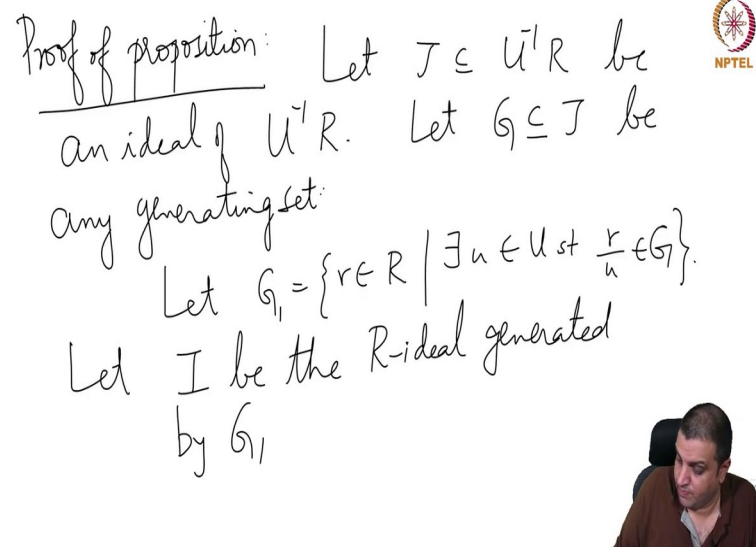 Proof of proposition: Let J ⊆ U⁻¹R be
an ideal of U⁻¹R. Let G ⊆ J be
any generating set.
Let G₁ = {r ∈ R | ∃ u ∈ U st r/u ∈ G}.
Let I be the R-ideal generated
by G₁
NPTEL